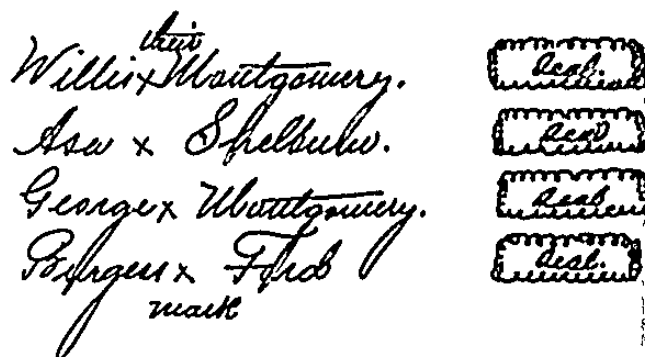 their
Willis x Montgomery. Seal.
Asa x Shelburn. Seal
George x Montgomery. Seal
Burgess x Ford Seal.
mark